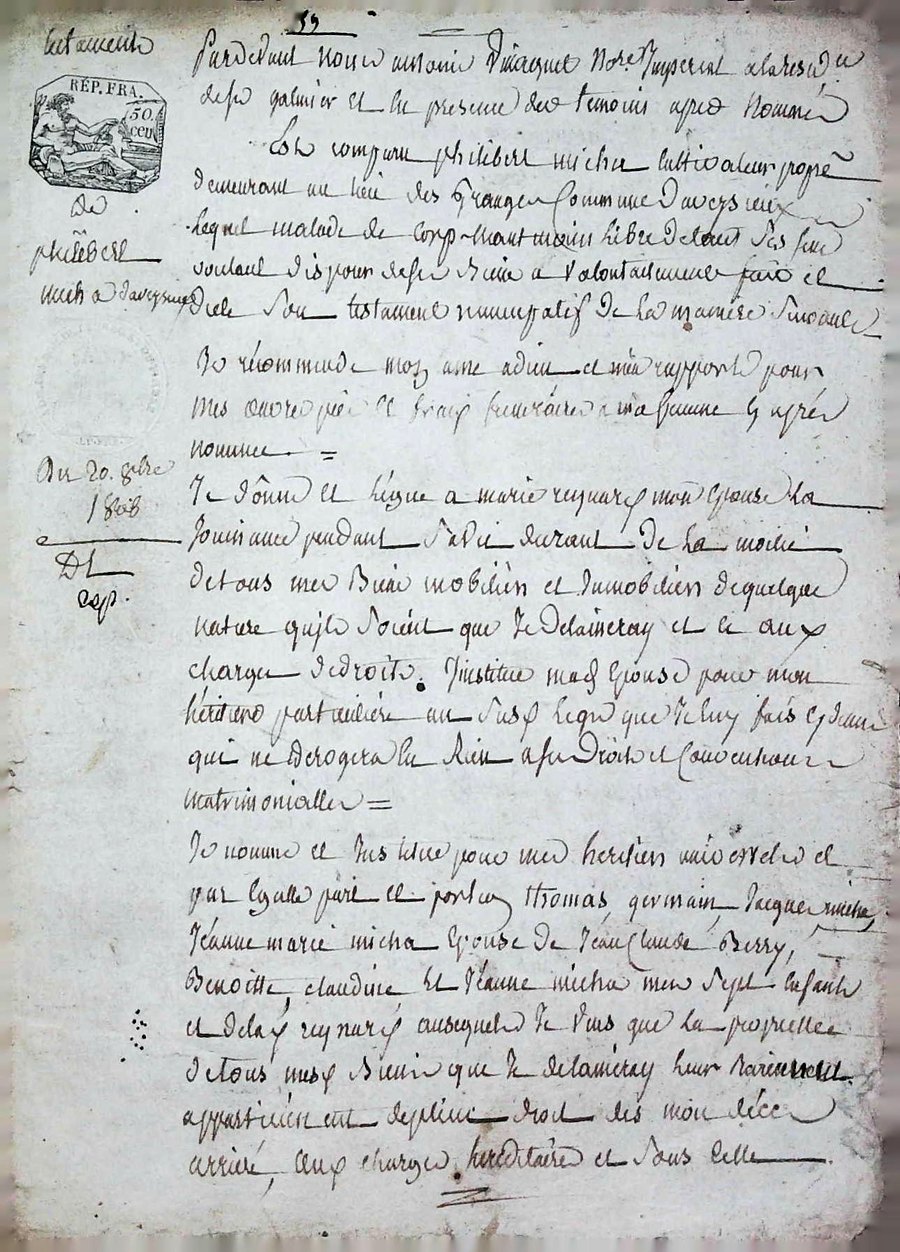 59
testament
RÉP. FRA.
50
CEN
de
philibert
micha daveysieux
Du 20. 8bre
1808
DL
exp.
Pardevant nous antoine not.re Imperial a la resid.ce
de st galmier et en presence des temoins apres Nommés
Est comparu philibert micha cultivateur propre
demeurant au lieu des Granges Commune daveysieux
Lequel malade de corps maintmoin libre de tout ses sens
voulant disposer de ses Biens a volontairement fait et
dicté son testament nuncupatif de la maniere suivante
Je récommende mon ame a dieu et m'en rapporte pour
mes œuvres pies et fraix funeraires a ma femme cy après
nommee =
Je donne et légue a marie reynard mon Epouse la
Jouissance pendant sa vie durant de la moitié
de tous mes Biens mobiliers et Immobiliers de quelque
nature quils soient que Je delaisseray et ce aux
charges de droits. J'institue mad Epouse pour mon
héritiere particuliére au susd legs que Je luy fais cy dessus
qui ne derogera en Rien a ses Droits et Conventions
matrimonialles =
Je nomme et Institue pour mes heritiers universels et
par Egalle part et portion thomas, germain, Jacques micha,
Jéanne marie micha Epouse de Jéan Claude Berry,
Benoitte, claudine Et Jéanne micha mes sept Enfants
et de lad reynard ausequels Je veus que la propriettée
de tous mesd Biens que Je delaiséray leur
appartiennent de plein droit des mon décés
arrivé, aux charges héréditaires et sous celle